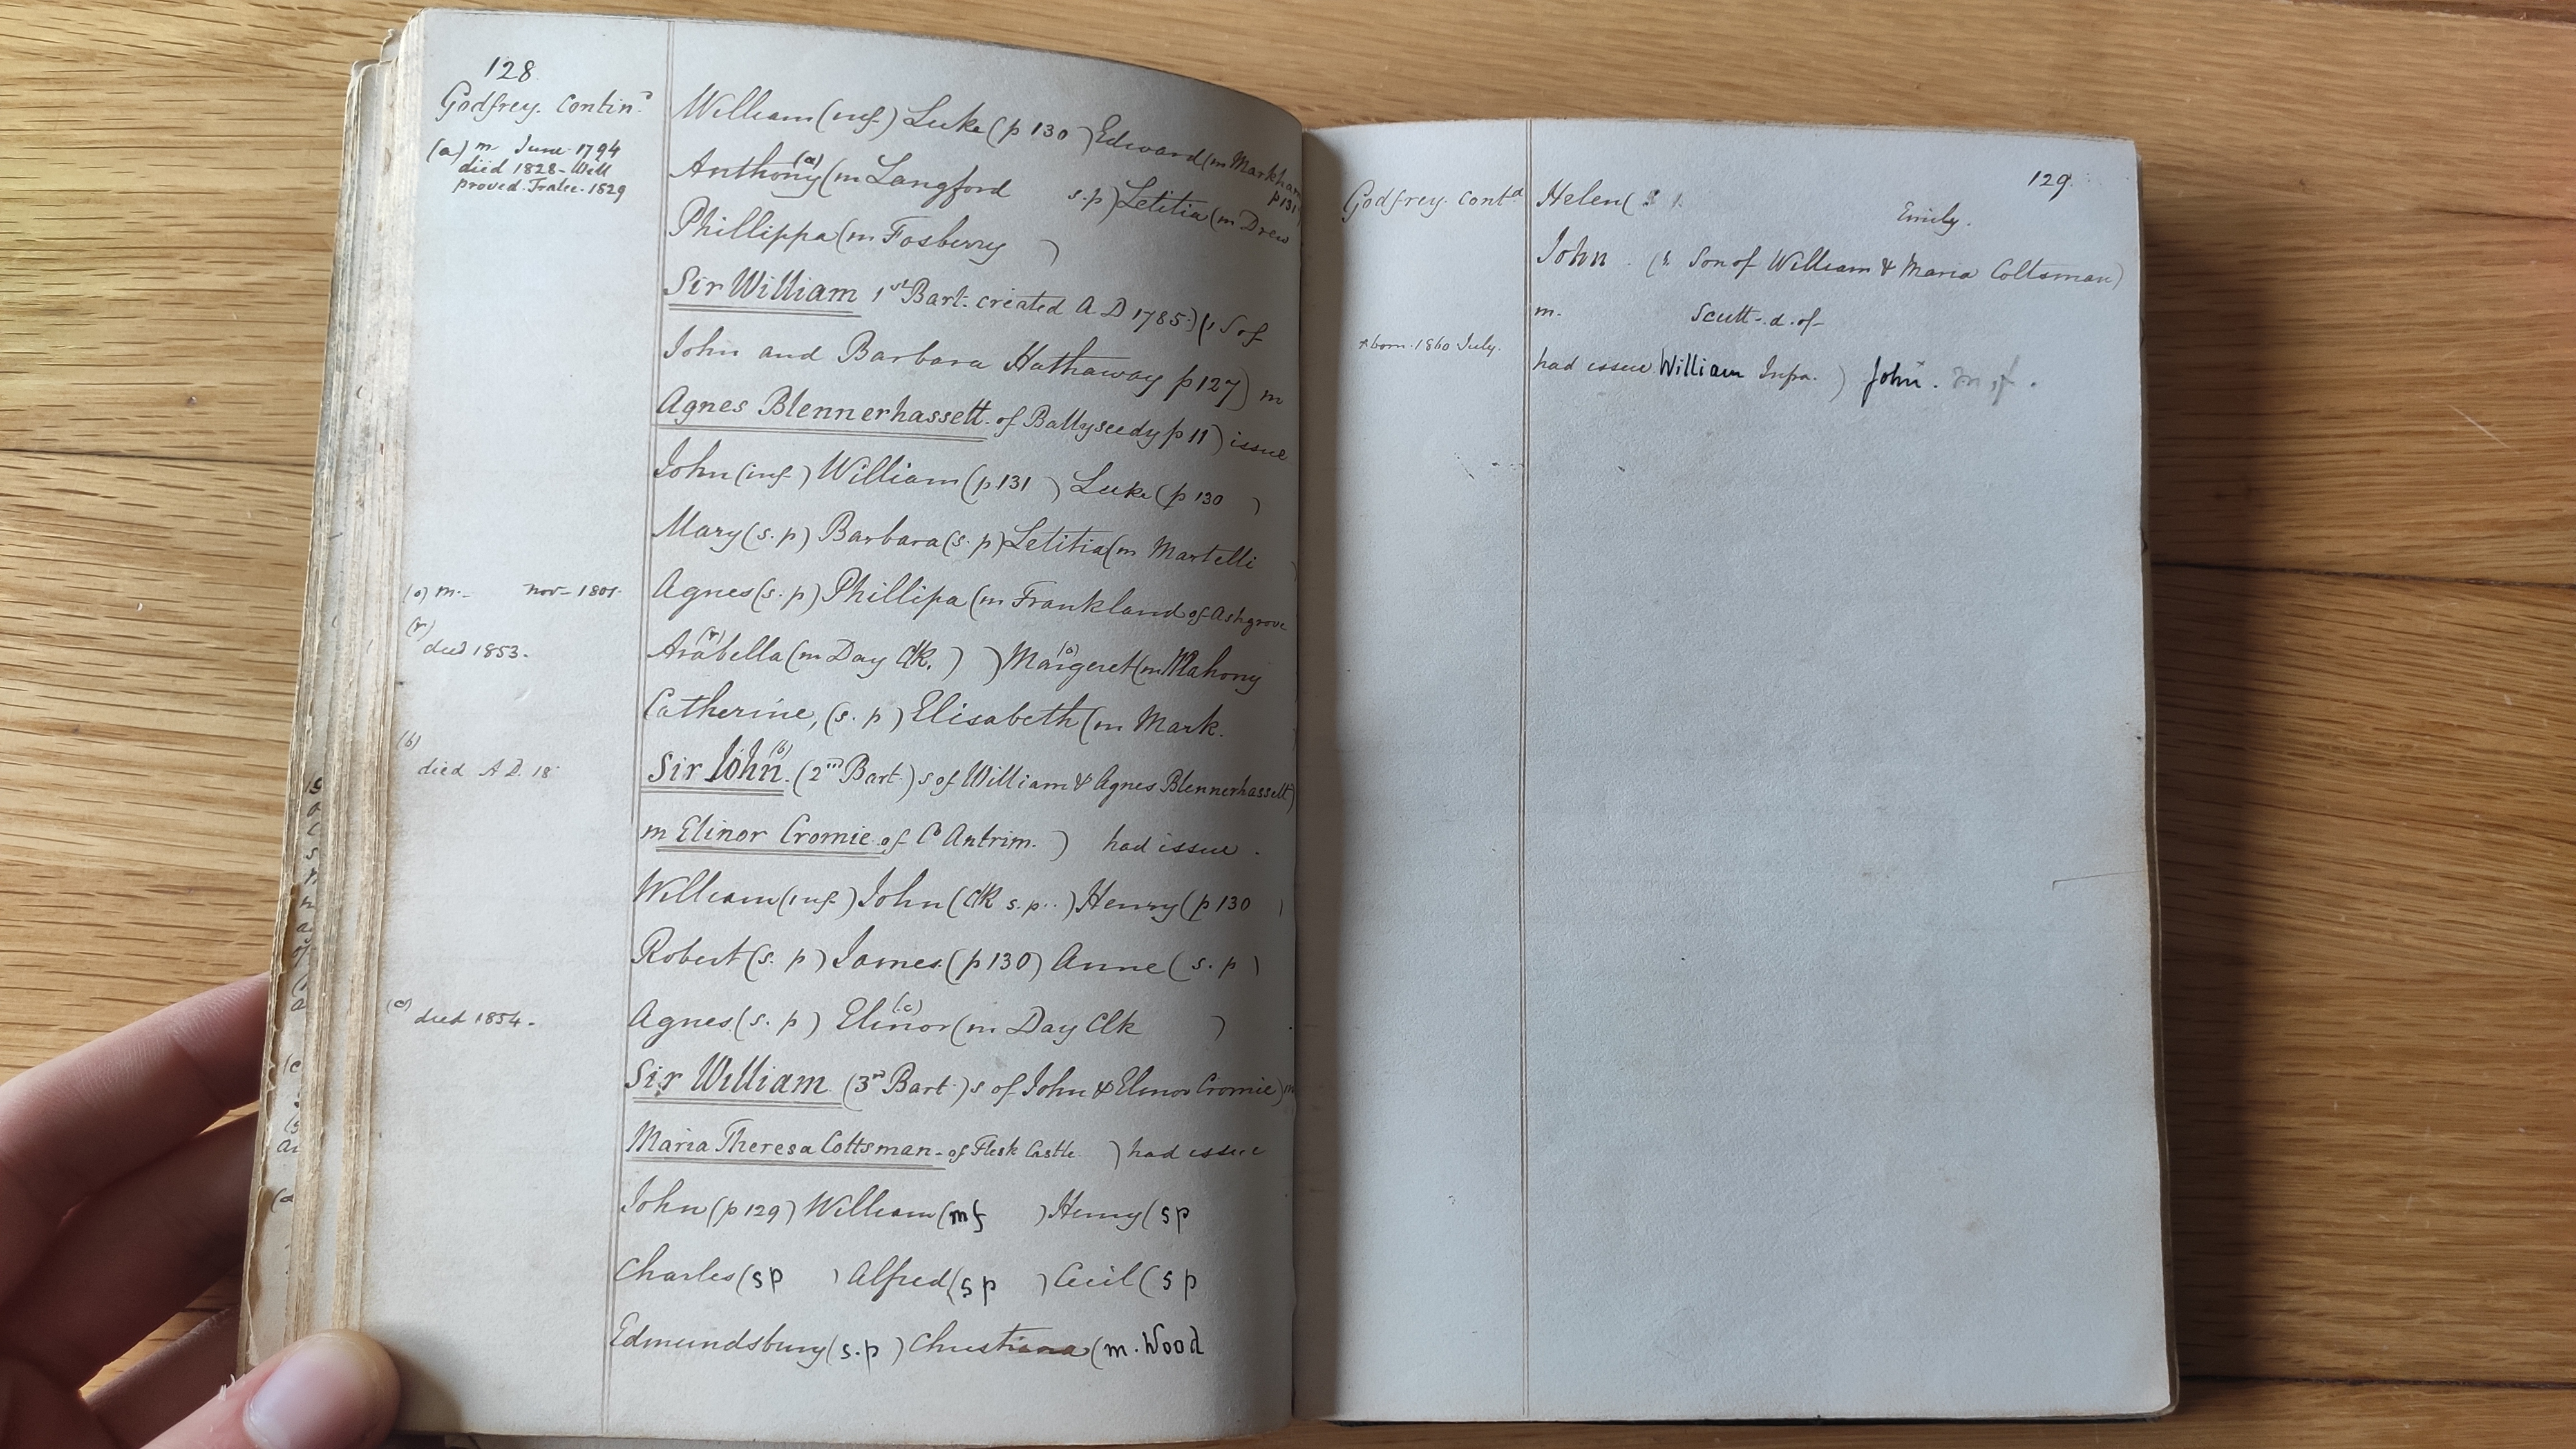 128
Godfrey. Contind
(a) m. June 1794
died 1828 - Will
proved. Tralee. 1829
William (inf) Luke (p 130 ) Edward (m Markham
p 131)
Anthony (a) (m Langford s.p) Letitia (m Drew
Phillippa (m Fosberry )
Sir William 1st Bart. created A D 1785.) (1 S of
John and Barbara Hathaway p 127) m
Agnes Blennerhassett. of Ballyseedy p 11) issue
John (inf) William (p 131 ) Luke (p 130 )
Mary (s. p) Barbara (s. p) Letitia (m Martelli
(o) m. nov - 1801.
Agnes (s. p) Phillipa (m Frankland of Ashgrove
(r) died 1853.
Arabella (r) (m Day Clk. ) ) Margeret (o) (m Mahony
Catherine, (s. p) Elisabeth (m Mark.
(b)
died A.D. 18
Sir John (b). (2nd Bart.) s of William & Agnes Blennerhassett)
m Elinor Cromie of Co Antrim. ) had issue.
William (inf) John (Clk s.p..) Henry (p 130 )
Robert (s. p) James. (p 130) Anne (s. p)
(c) died 1854.
Agnes. (s. p) Elinor (c) (m Day Clk )
Sir William (3rd Bart.) s of John & Elinor Cromie) m
Maria Theresa Coltsman - of Flesk Castle ) had issue
John (p 129) William (mf ) Henry (sp
Charles (sp ) Alfred (sp ) Cecil (sp
Edmundsbury (s.p) Christiana (m. Wood
129.
Godfrey. Contd
Helen (
Emily.
John. ( Son of William & Maria Coltsman)
m. Scutt - d. of -
born. 1860 July.
had issue William Infra. ) John.